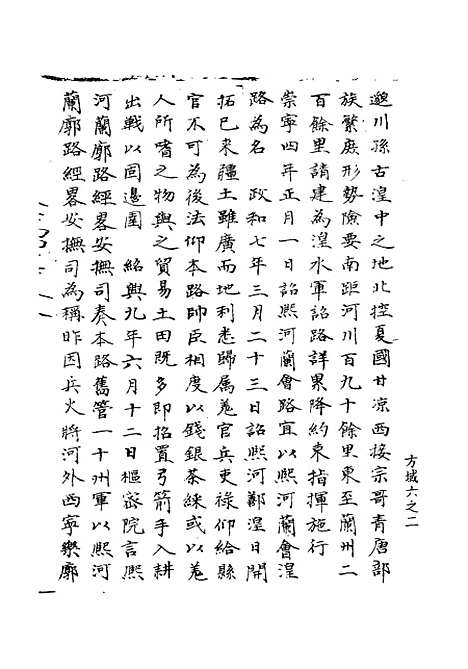 邈川孫古湟中之地北控夏國甘凉西接宗哥青唐部
族繁庶形勢險要南距河川百九十餘里東至蘭州二
百餘里請建為湟水軍詔路詳果降約束指揮施行
崇寧四年正月一日詔熙河蘭會路宜以熙河蘭會湟
路為名　政和七年三月二十三日詔熙河鄯湟日開
拓已來疆土雖廣而地利悉歸属羌官兵吏祿仰給縣
官不可為後法仰本路帥臣相度以錢銀茶綵或以羌
人所嗜之物與之貿易土田既多即招置弓箭手入耕
出戰以固邊圉　紹興九年六月十二日樞密院言熙
河蘭廓路經畧安撫司奏本路舊管一十州軍以熙河
蘭廓路經畧安撫司為稱昨因兵火將河外西寧樂廓
方域六之二